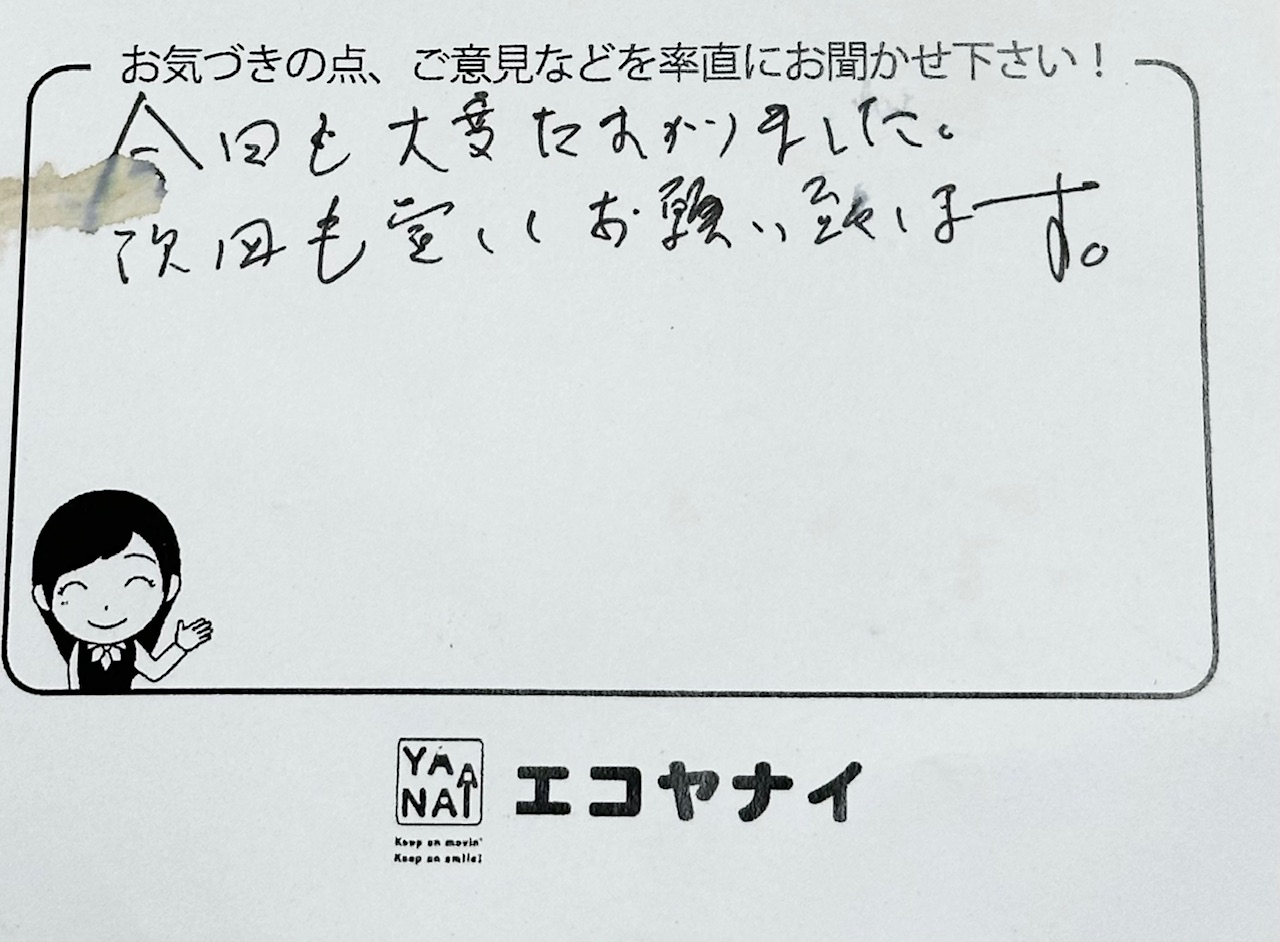 お気づきの点、ご意見などを率直にお聞かせ下さい！
今回も大変たすかりました。
次回も宜しくお願い致します。
YANAI
エコヤナイ
Keep on movin'
Keep on smile!